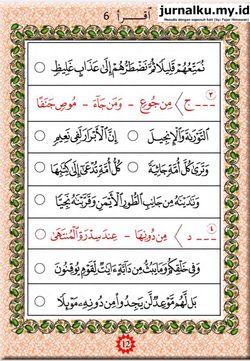 jurnalku.my.id
Menulis dengan sepenuh hati (by: Fajar Himawan)
اقرأ 6
نُمَتِّعُهُمْ قَلِيلًا ثُمَّ نَضْطَرُّهُمْ إِلَىٰ عَذَابٍ غَلِيظٍ
٣ --- ج〉 مِن جُوعٍ - وَمَن جَآءَ - مُوصٍ جَنَفًا
التَّوْرَىٰةَ وَالْإِنجِيلَ ○ إِنَّ الْأَبْرَارَ لَفِي نَعِيمٍ
وَتَرَىٰ كُلَّ أُمَّةٍ جَاثِيَةً ○ كُلُّ أُمَّةٍ تُدْعَىٰٓ إِلَىٰ كِتَٰبِهَا
وَنَٰدَيْنَٰهُ مِن جَانِبِ الطُّورِ الْأَيْمَنِ وَقَرَّبْنَٰهُ نَجِيًّا
٤ --- د〉 مِن دُونِهَا - عِندَ سِدْرَةِ الْمُنتَهَىٰ
وَفِي خَلْقِكُمْ وَمَا يَبُثُّ مِن دَآبَّةٍ ءَايَٰتٌ لِّقَوْمٍ يُوقِنُونَ
بَل لَّهُم مَّوْعِدٌ لَّن يَجِدُوا مِن دُونِهِ مَوْئِلًا
12